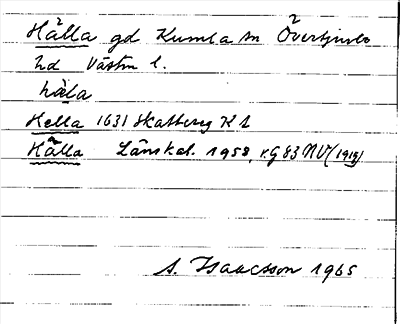 Hälla gd Kumla sn Övertjurbo
hd Västm l.
häla
Hella 1631 Skattereg K 2
Hälla Länskal. 1958, r.G 83 NV (1915)
S. Isaacsson 1965